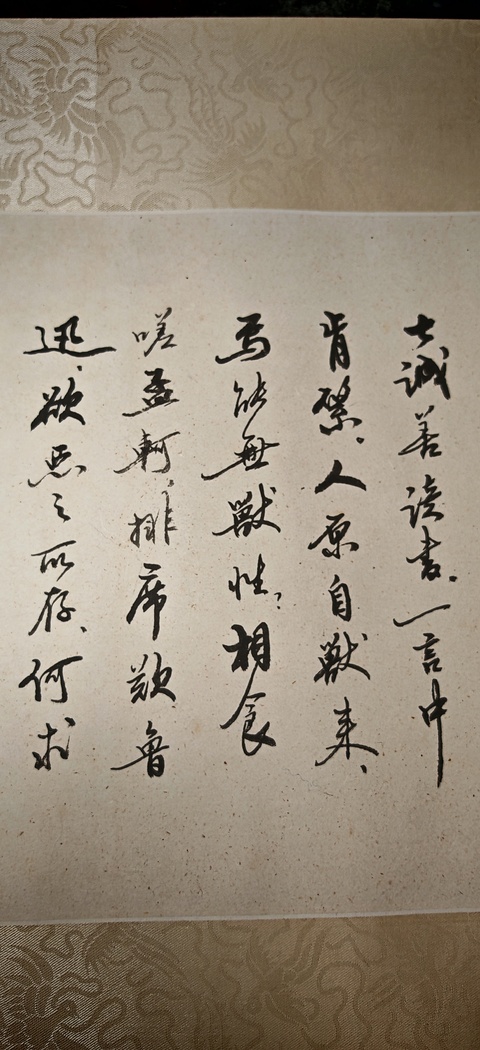 士誠善读書、一言中
肯綮、人原自獸来、
焉能無獸性、相食
嗟孟軻、排席歎魯
迅、欲恶之所存、何求